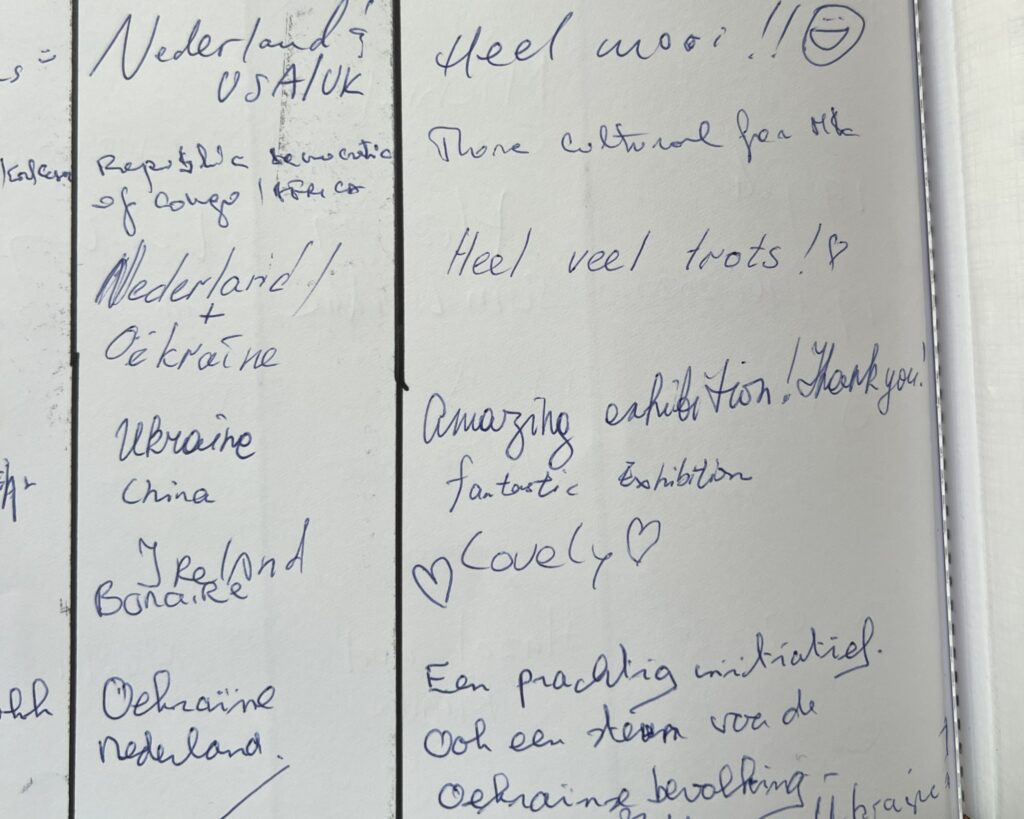 Nederland &
USA/UK
Heel mooi !!
Republic Democratic
of Congo / AFRICA
cultural
Nederland /
+
Oekraïne
Heel veel trots !
Ukraine
Amazing exhibition! Thank you!
China
fantastic Exhibition
IReland
Bonaire
Lovely
Oekraïne
Nederland.
Een prachtig initiatief.
Ook een steun voor de
Oekrainse bevolking -
Ukraine